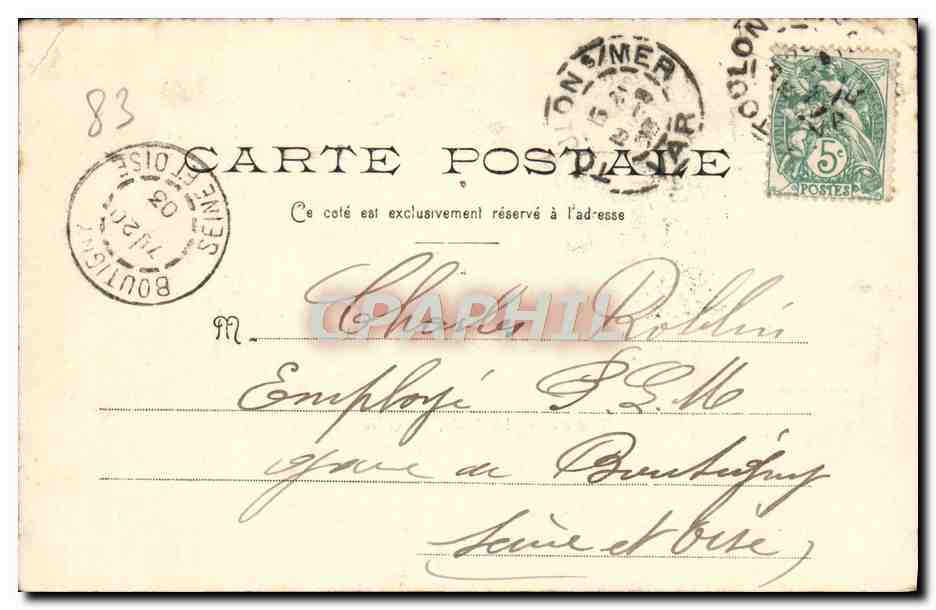 83
TOULON S/MER
VAR
TOULON
5c
POSTES
CARTE POSTALE
BOUTIGNY
SEINE ET OISE
20
03
Ce coté est exclusivement réservé à l'adresse
CPAPHIL
M. Charles Roblin
Employé P.L.M
gare de Boutigny
Seine et Oise